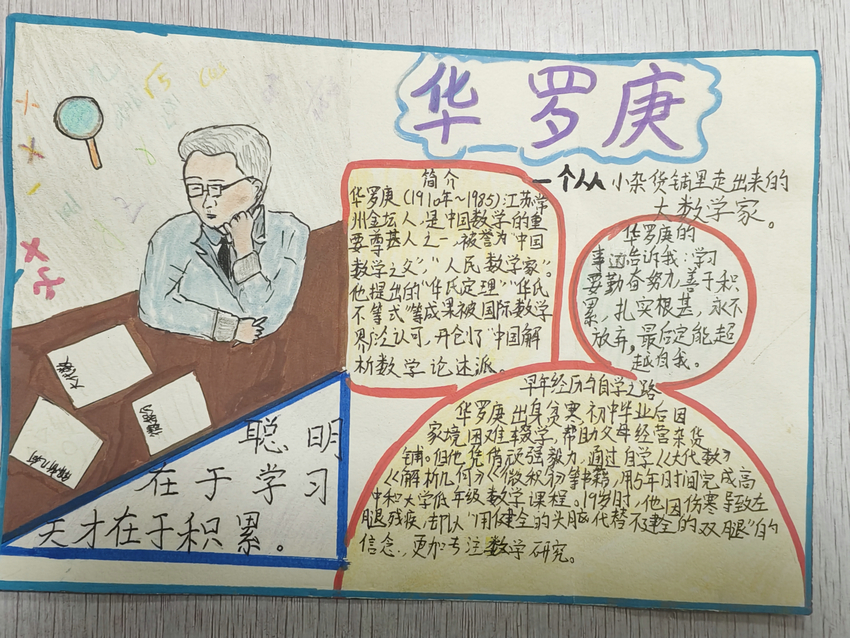 华罗庚
一个从小杂货铺里走出来的
大数学家。
简介
华罗庚(1910年~1985)江苏常
州金坛人,是中国数学的重
要尊基人之一,被誉为“中国
数学之父”,“人民数学家”。
他提出的“华氏定理”“华氏
不等式”等成果被国际数学
界泛认可,开创了“中国解
析数学论迷派。
华罗庚的
事迹告诉我:学习
要勤奋努力,善于积
累,扎实根基,永不
放弃。最后定能超
越自我。
早年经历与自学之路
华罗庚出身贫寒,初中毕业后因
家境困难辍学,帮助父母经营杂货
铺。但他凭借顽强毅力,通过自学《大代数》
《解析几何》《微积分》等书籍,用5年时间完成高
中和大学低年级数学课程。19岁时,他因伤寒导致左
腿残疾,却以“用健全的头脑,代替不健全的双腿”的
信念,更加专注数学研究。
聪明
在于学习
天才在于积累。
大代数
微积分
解析几何